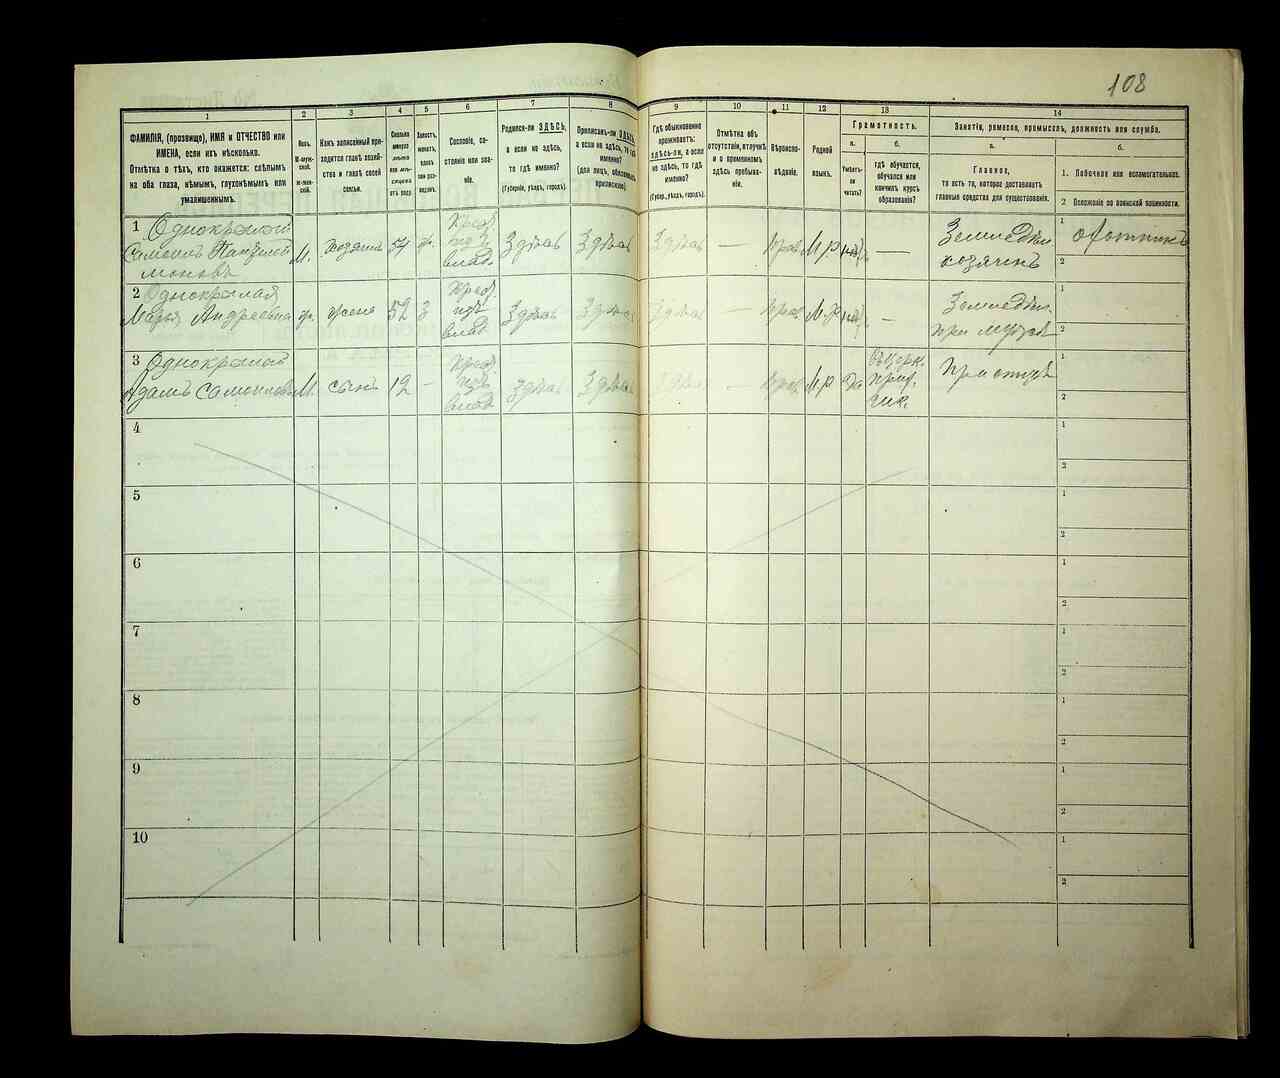 108
1
2
3
4
5
6
7
8
9
10
11
12
13
14
ФАМИЛІЯ, (прозвище), ИМЯ и ОТЧЕСТВО или
ИМЕНА, если ихъ нѣсколько.
Отмѣтка о тѣхъ, кто окажется: слѣпымъ
на оба глаза, нѣмымъ, глухонѣмымъ или
умалишеннымъ.
Полъ.
М-муж-
ской.
Ж-жен-
скій.
Какъ записанный при-
ходится главѣ хозяй-
ства и главѣ своей
семьи.
Сколько
минуло
лѣтъ
или мѣ-
сяцевъ
отъ роду
Холостъ,
женатъ,
вдовъ
или раз-
веденъ.
Сословіе, со-
стояніе или зва-
ніе.
Родился-ли ЗДѢСЬ,
а если не здѣсь,
то гдѣ именно?
(Губернія, уѣздъ, городъ).
Приписанъ-ли ЗДѢСЬ,
а если не здѣсь, то гдѣ
именно?
(для лицъ, обязанныхъ
припискою).
Гдѣ обыкновенно
проживаетъ:
ЗДѢСЬ-ЛИ, а если
не здѣсь, то гдѣ
именно?
(Губер., уѣздъ, городъ).
Отмѣтка объ
отсутствіи, отлучкѣ
и о временномъ
здѣсь пребыва-
ніи.
Вѣроиспо-
вѣданіе.
Родной
языкъ.
Грамотность.
а.
Умѣетъ-
ли
читать?
б.
гдѣ обучается,
обучался или
кончилъ курсъ
образованія?
Занятіе, ремесло, промыселъ, должность или служба.
а.
Главное,
то есть то, которое доставляетъ
главныя средства для существованія.
б.
1. Побочное или вспомогательное.
2 Положеніе по воинской повинности.
1 Однокрылой
Самоилъ
М.
хозяинъ
54
ж.
Крест.
влад.
Здѣсь
Здѣсь
Здѣсь
—
Прав
М.р
—
Земледѣл.
хозяинъ
1
2
2 Однокрылая
Марья Андреевна
ж.
жена
52
З
Крест.
влад.
Здѣсь
Здѣсь
Здѣсь
—
Прав
М.р
—
Земледѣл.
при мужѣ
1
2
3 Однокрылой
М.
сынъ
12
-
Крест.
влад
Здѣсь
Здѣсь
—
Прав
М.р
да
При отцѣ
1
2
4
1
2
5
1
2
6
1
2
7
1
2
8
1
2
9
1
2
10
1
2